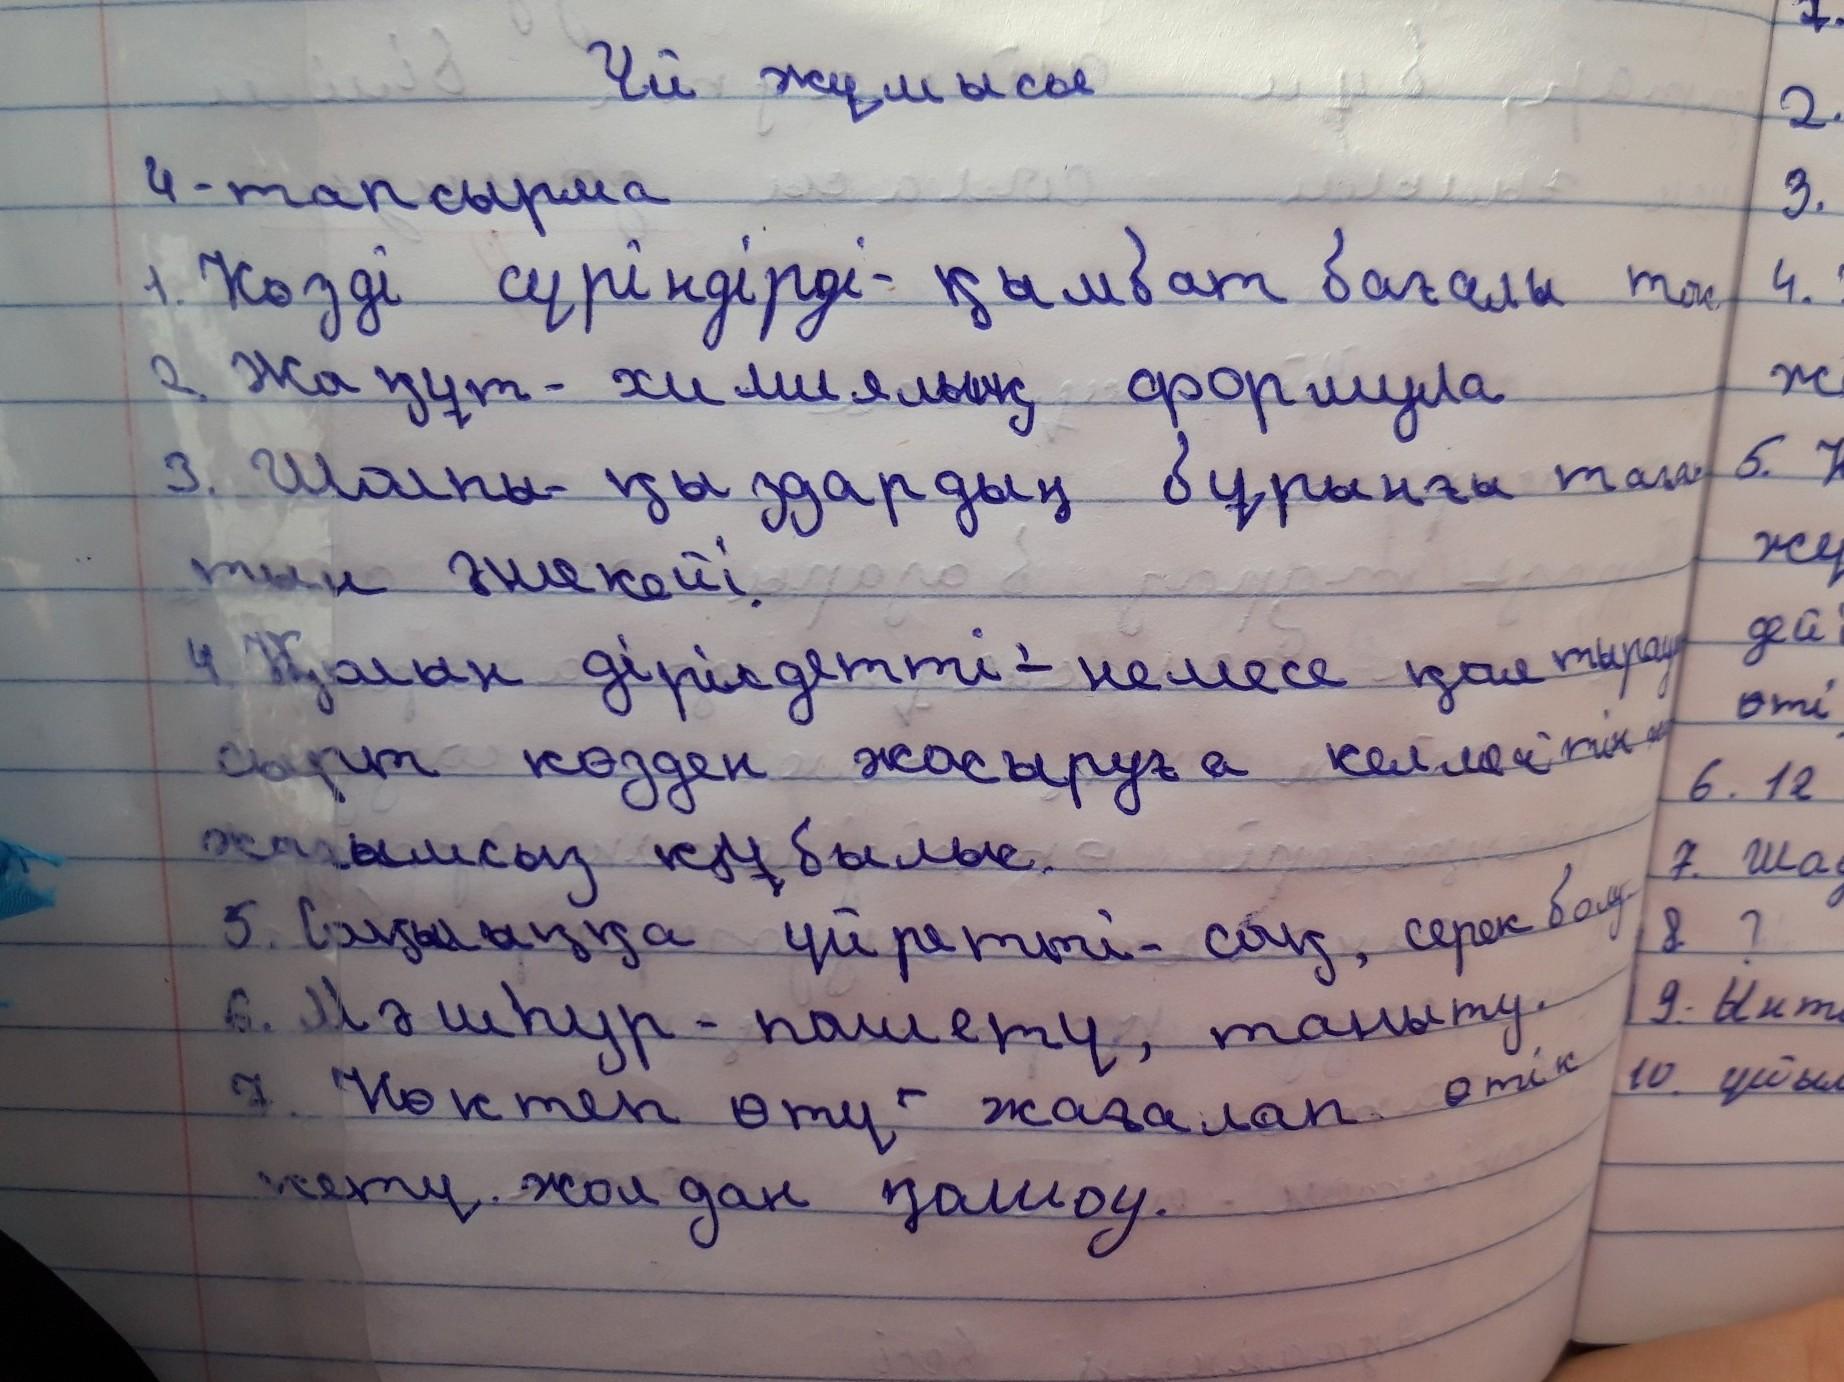 Үй жұмысы
4-тапсырма
1. Көзді сүріндірді - қымбат бағалы
2. Жақұт - химиялық формула
3. Шолпы - қыздардың бұрынғы
тын әшекейі.
4 Қолын дірілдетті - немесе қалтырау
көзден жасыруға келмейтін
жағымсыз құбылыс.
5. Сақылыққа үйретті - сақ, серек болу.
6. Мәшһүр - паш ету, таныту.
7. Көктеп өту - жағалап өтік
кету. жолдан қашоу.
1.
2.
3.
4.
5.
6. 12
7.
8 ?
9.
10.